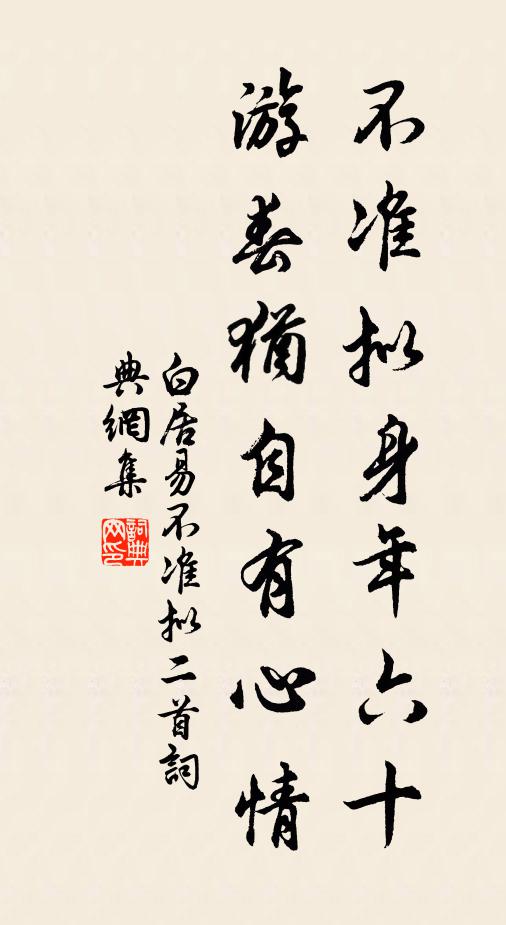 不准拟身年六十
游春犹自有心情
白居易不准拟二首詞
典網集
詞典
网印